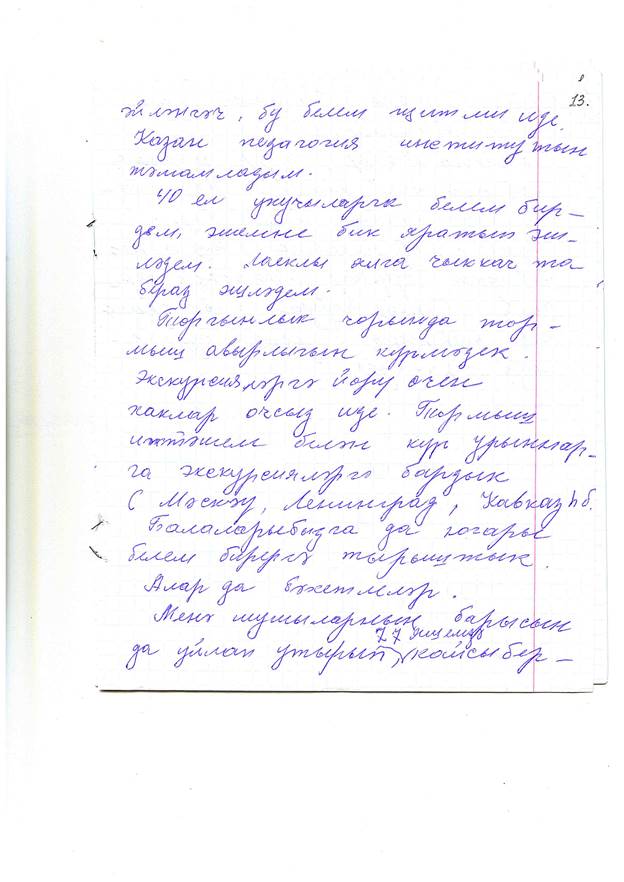 13.
эшләгәч, бу белем җитми иде.
Казан педагогия институтын
тәмамладым.
40 ел укучыларга белем бир-
дем, эшемне бик яратып эш-
ләдем. Лаеклы ялга чыккач та
бераз эшләдем.
Торгынлык чорында тор-
мыш авырлыгын күрмәдек.
Экскурсияләргә йөрү өчен
хаклар очсыз иде. Тормыш
иптәшем белән күп урыннар-
га экскурсияләргә бардык
(Мәскәү, Ленинград, Кавказ һб.
Балаларыбызга да югары
белем бирергә тырыштык.
Алар да бәхетлеләр.
Менә шушыларның барысын
77 яшемдә
да уйлап утырып, кайсы бер-